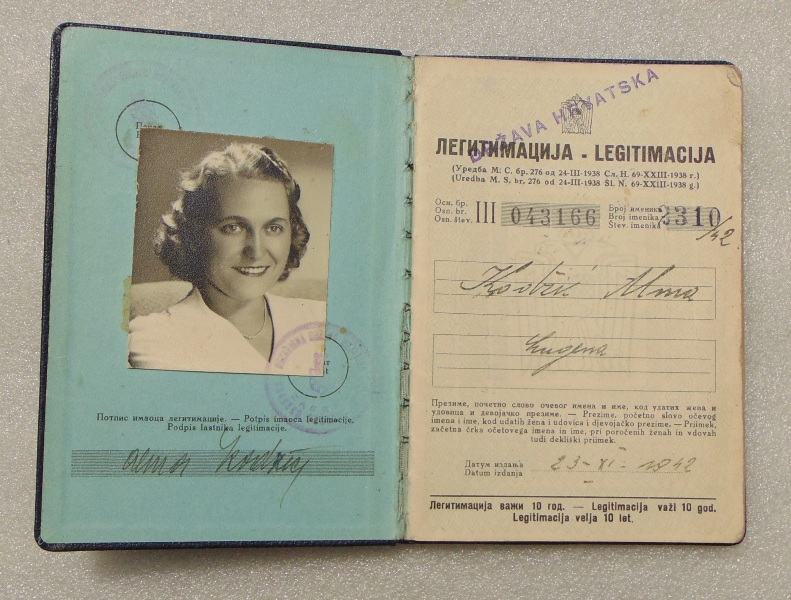 Печат
Потпис имаоца легитимације. — Potpis imaoca legitimacije.
Podpis lastnika legitimacije.
Alma
DRŽAVA HRVATSKA
ЛЕГИТИМАЦИЈА - LEGITIMACIJA
(Уредба М. С. бр. 276 од 24-III-1938 Сл. Н. 69-XXIII-1938 г.)
(Uredba M. S. br. 276 od 24-III-1938 Sl. N. 69-XXIII-1938 g.)
Осн. бр.
Osn. br.
Osn. štev.
III 043166
Број именика
Broj imenika
Štev. imenika
3310
/42
Alma
Eugena
Презиме, почетно слово очевог имена и име, код удатих жена и
удовица и девојачко презиме. — Prezime, početno slovo očevog
imena i ime, kod udatih žena i udovica i djevojačko prezime. — Priimek,
začetna črka očetovega imena in ime, pri poročenih ženah in vdovah
tudi dekliški priimek.
Датум издања
Datum izdanja
23-XI-1942
Легитимација важи 10 год. — Legitimacija važi 10 god.
Legitimacija velja 10 let.